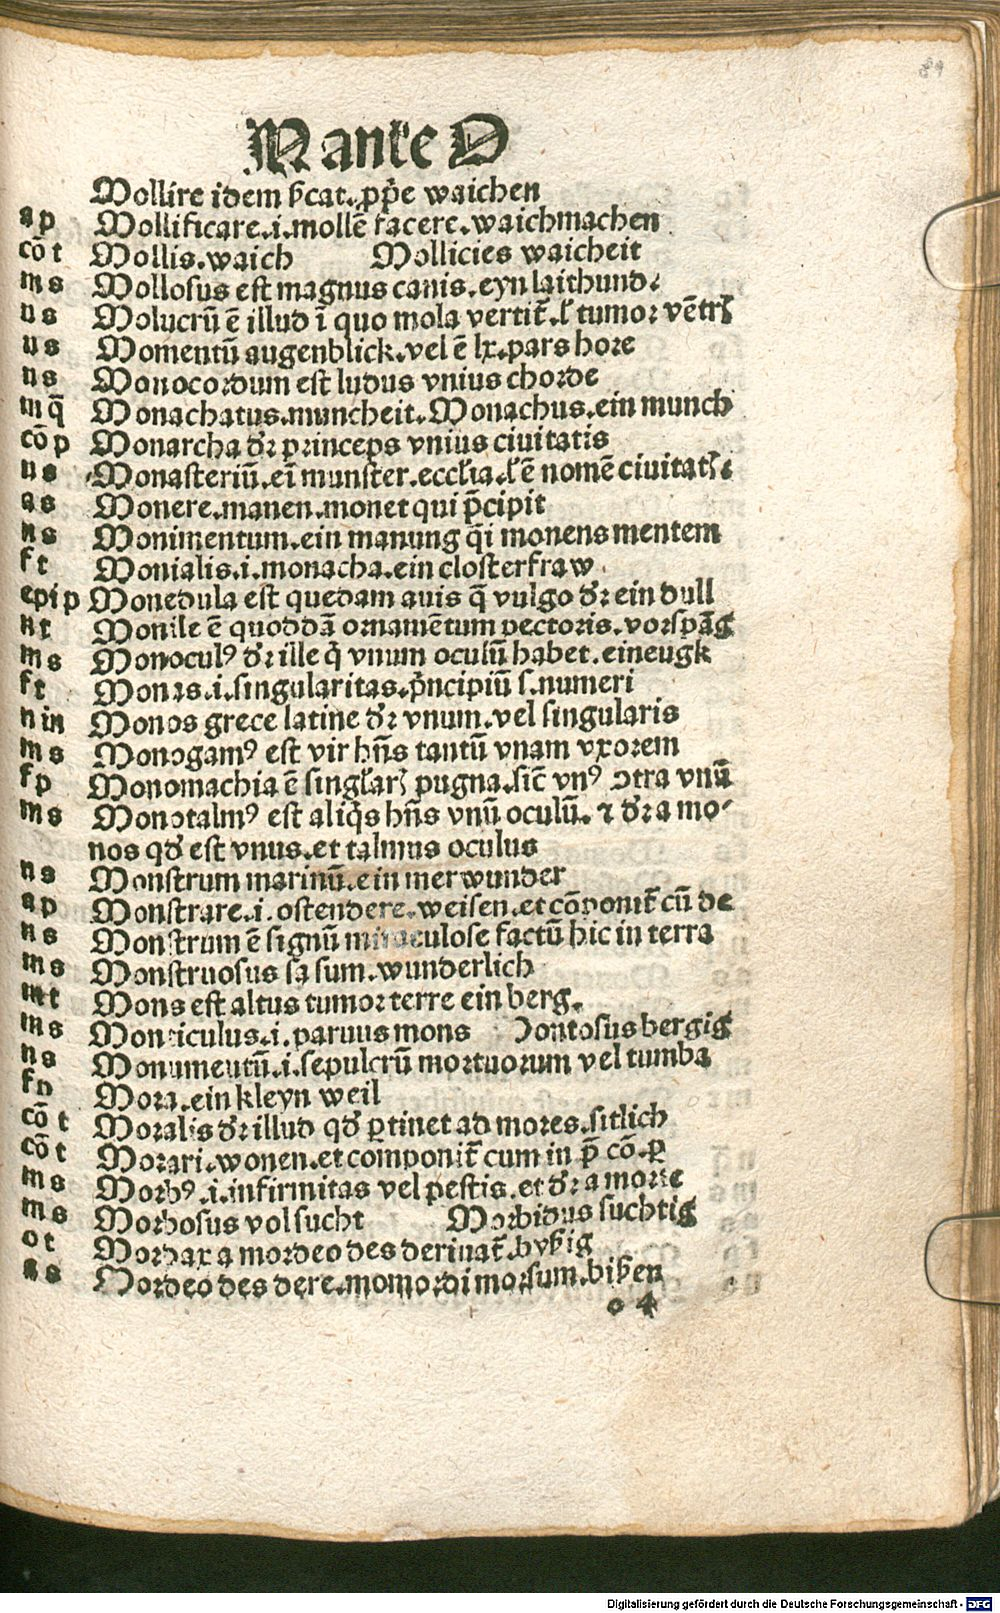 89
M ante O
Mollire idem ſicat. ꝓpͥe waichen
ap Mollificare.i.mollē facere.waichmachen
cō t Mollis.waich Mollicies waicheit
ms Moloſus eſt magnus canis.eyn laithund.
ns Molucrū ē illud ī quo mola vertit̄.ł tumor vētrꝭ
us Momentū augenblick.vel ē lx.pars hore
ns Monocordum eſt ludus vnius chorde
mq̄ Monachatus.muncheit.Monachus.ein munch
cō p Monarcha dr̄ princeps vnius ciuitatis
ns Monaſteriū.eī munſter.eccłia.ł ē nomē ciuitatꝭ.
as Monere.manen.monet qui p̄cipit
ns Monimentum.ein manung q̄i monens mentem
ft Monialis.i.monacha.ein cloſterfraw.
epi p Monedula eſt quedam auis q̄ vulgo dr̄ ein dull
nt Monile ē quoddā ornamētum pectoris.vorſpāg
ms Monoculꝰ dr̄ ille q̇ vnum oculū habet.eineugk
ft Monas.i.ſingularitas.pͥncipiū ſ.numeri
n in Monos grece latine dr̄ vnum.vel ſingularis
ms Monogamꝰ eſt vir hn̄s tantū vnam vxorem
fp Monomachia ē ſingłarꝭ pugna.ſic̄ vnꝰ ꝯtra vnū
ms Monotalmꝰ eſt aliq̇s hn̄s vnū oculū. ⁊ dr̄ a mo⸗
nos qd̓ eſt vnus.et talmus oculus
ns Monſtrum marinū.ein merwunder
ap Monſtrare.i.oſtendere.weiſen.et cōponit̄ cū de
ns Monſtrum ē ſignū miraculoſe factū hic in terra
ms Monſtruoſus ſa ſum.wunderlich
mt Mons eſt altus tumor terre ein berg.
ms Monticulus.i.paruus mons Montoſus bergig
ns Monumentū.i.ſepulcrū mortuorum vel tumba
fp Mora.ein kleyn weil
cō t Moralis dr̄ illud qd̓ ꝑtinet ad mores.ſitlich
cō t Morari.wonen.et componit̄ cum in p̄ cō.ꝑ
ms Morbꝰ.i.infirmitas vel peſtis.et dr̄ a morte
ms Morboſus vol ſucht Morbidus ſuchtig
ot Mordax a mordeo des deriuat̄.byßig
as Mordeo des dere.momordi morſum.bißen
o 4
Digitalisierung gefördert durch die Deutsche Forschungsgemeinschaft - DFG